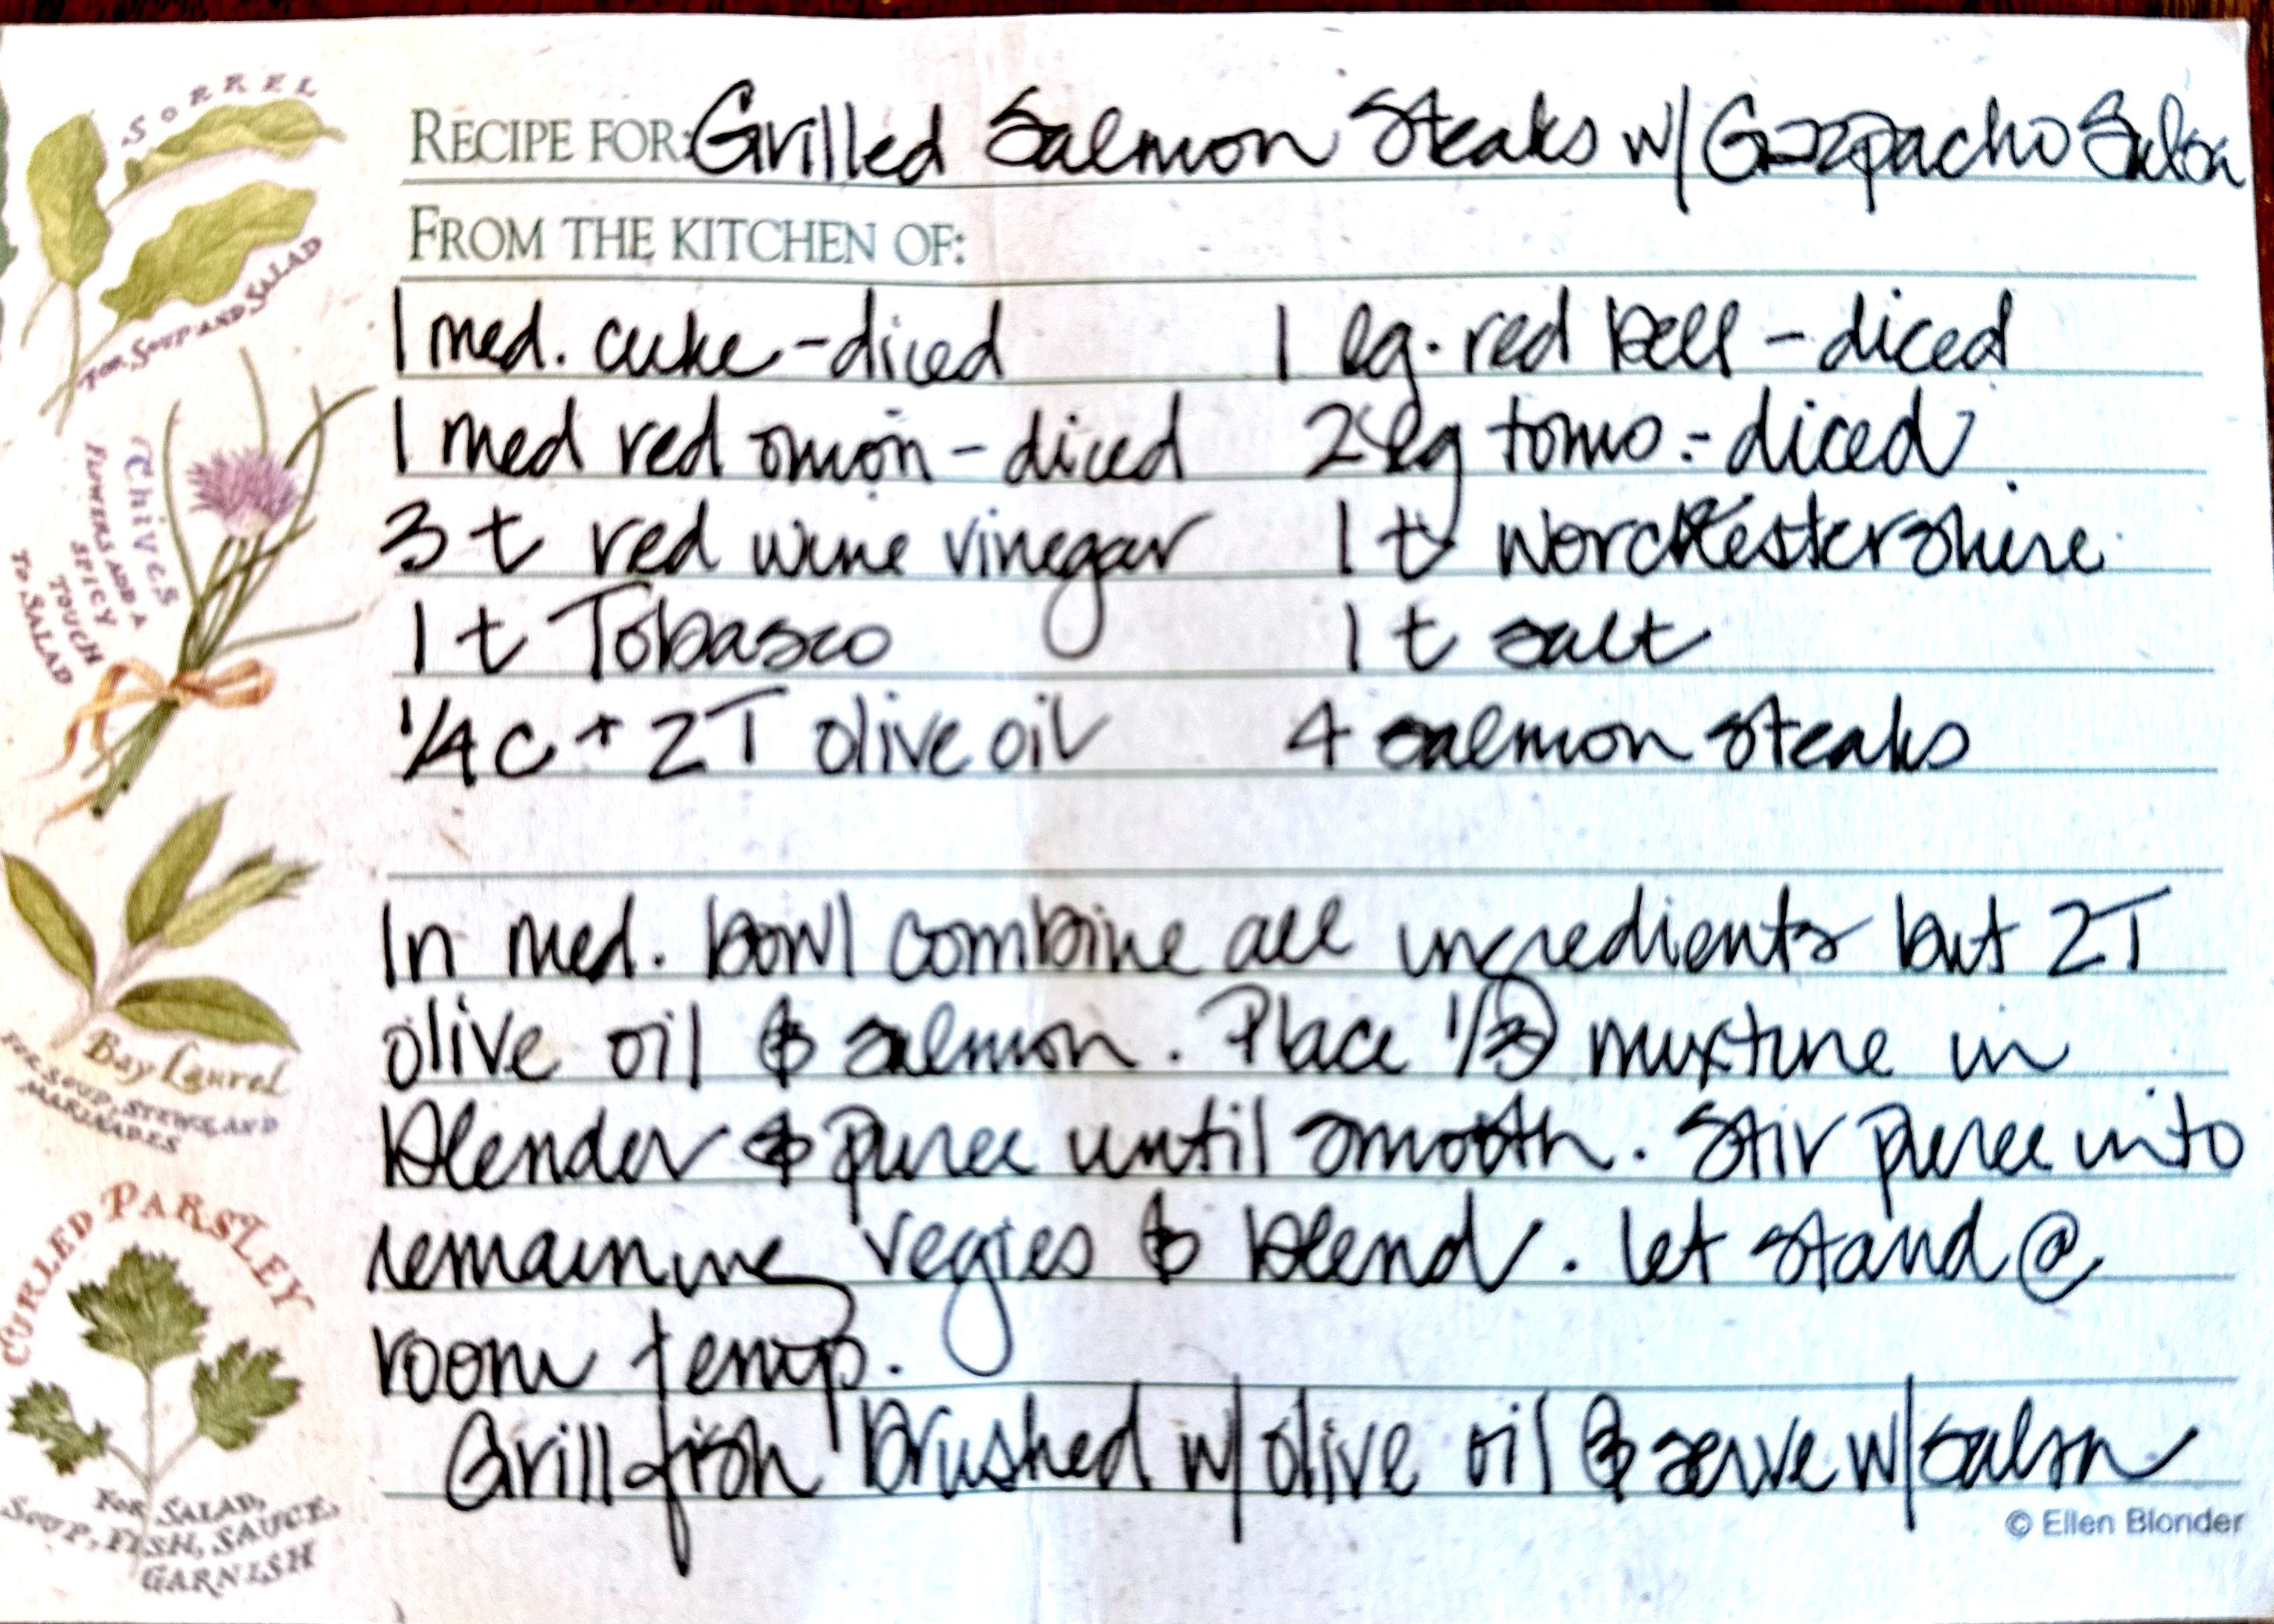 SORREL
FOR SOUP AND SALAD
Chives
FLOWERS ADD A
SPICY
TOUCH
TO SALAD
Bay Laurel
FOR SOUP, STEWS, AND
MARINADES
CURLED PARSLEY
FOR SALAD,
SOUP, FISH, SAUCE,
GARNISH
RECIPE FOR: Grilled Salmon Steaks w/ Gazpacho Salsa
FROM THE KITCHEN OF:
1 med. cuke - diced 1 lg. red bell - diced
1 med red onion - diced 2 lg toms. - diced
3 t red wine vinegar 1 t Worchestershire
1 t Tobasco 1 t salt
1/4 c + 2 T olive oil 4 salmon steaks
In med. bowl combine all ingredients but 2T
olive oil & salmon. Place 1/3 mixture in
blender & puree until smooth. Stir puree into
remaining vegies & blend. Let stand @
room temp.
Grill fish brushed w/ olive oil & serve w/ salsa
© Ellen Blonder